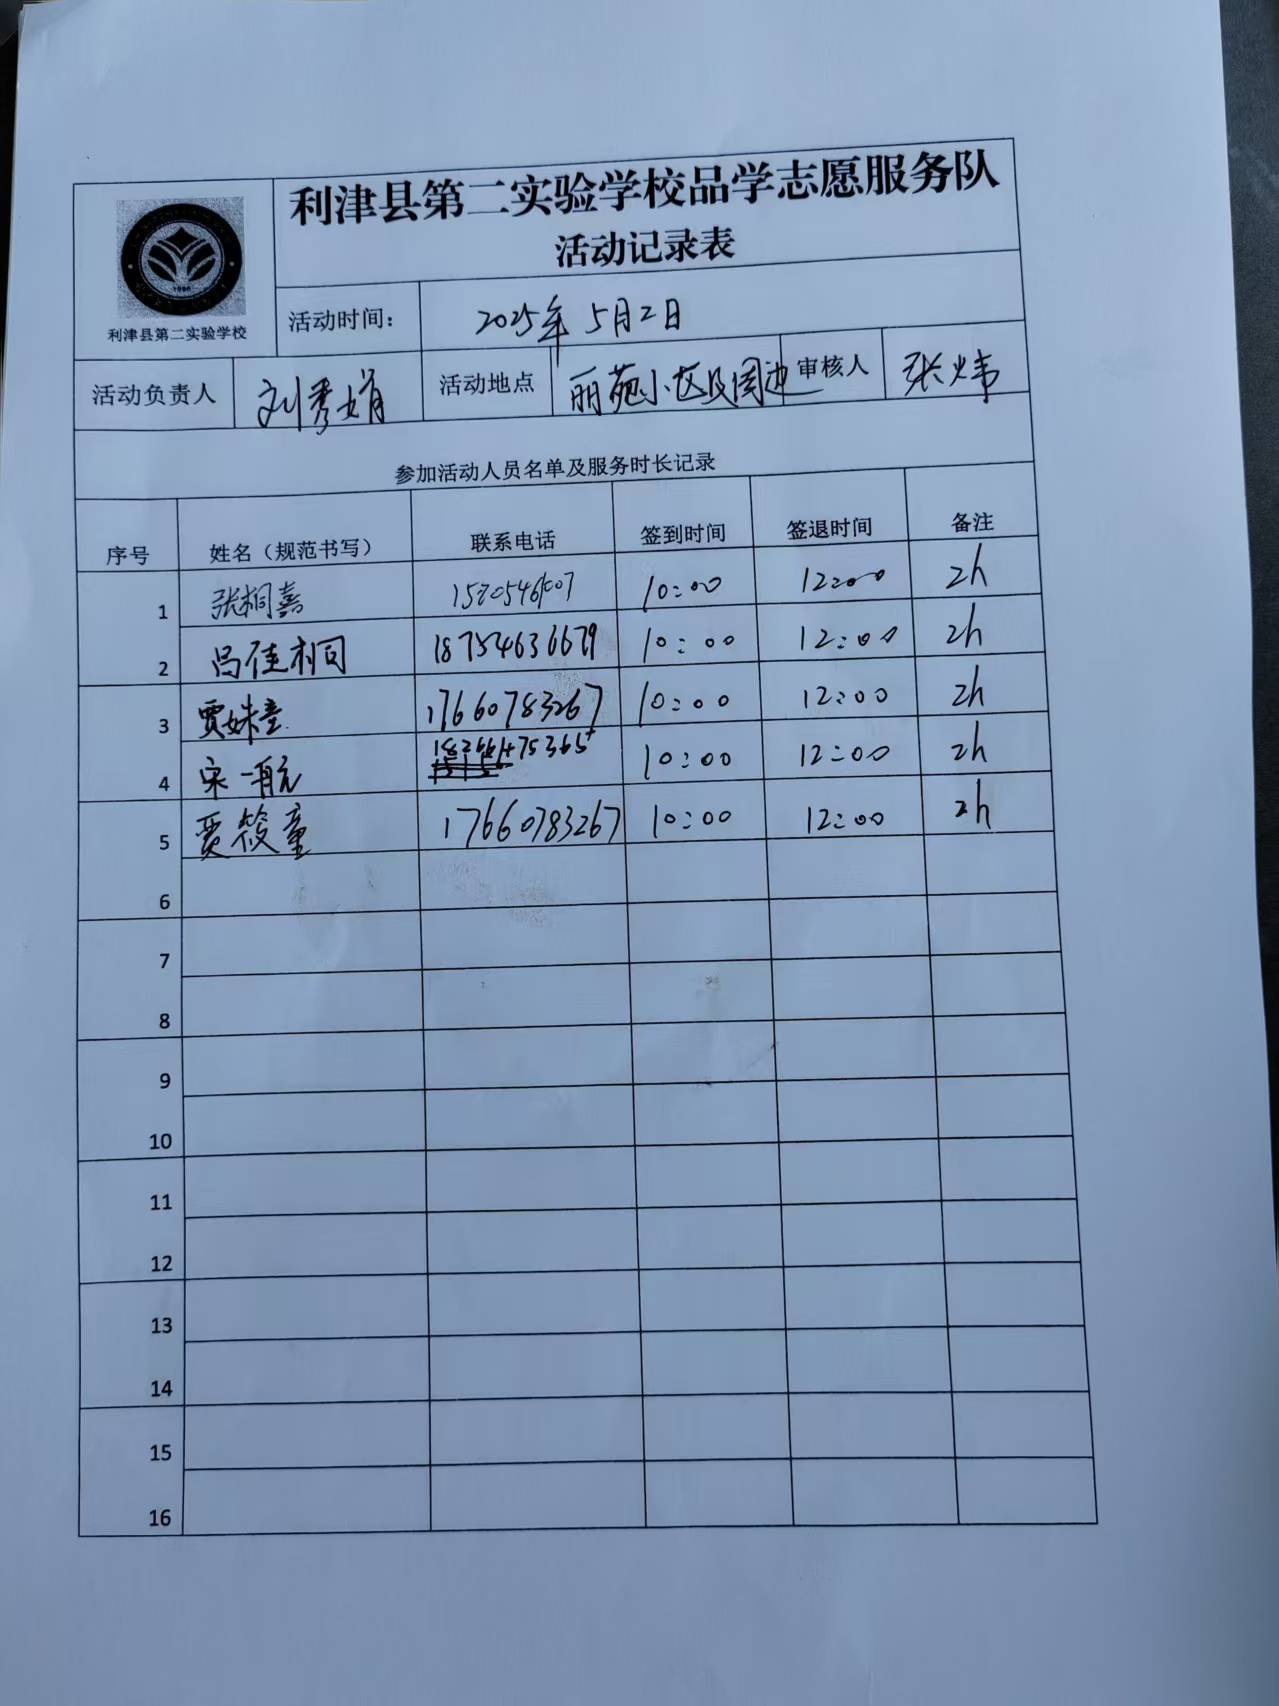 利津县第二实验学校品学志愿服务队
活动记录表
利津县第二实验学校
活动时间： 2025年5月2日
活动负责人 刘秀娟 活动地点 丽苑小区及周边 审核人 张炜
参加活动人员名单及服务时长记录
序号 姓名（规范书写） 联系电话 签到时间 签退时间 备注
1 张桐嘉 10:00 12:00 2h
2 吕佳桐 18754636679 10:00 12:00 2h
3 贾姝童 17660783267 10:00 12:00 2h
4 宋一航 10:00 12:00 2h
5 贾筱童 17660783267 10:00 12:00 2h
6
7
8
9
10
11
12
13
14
15
16